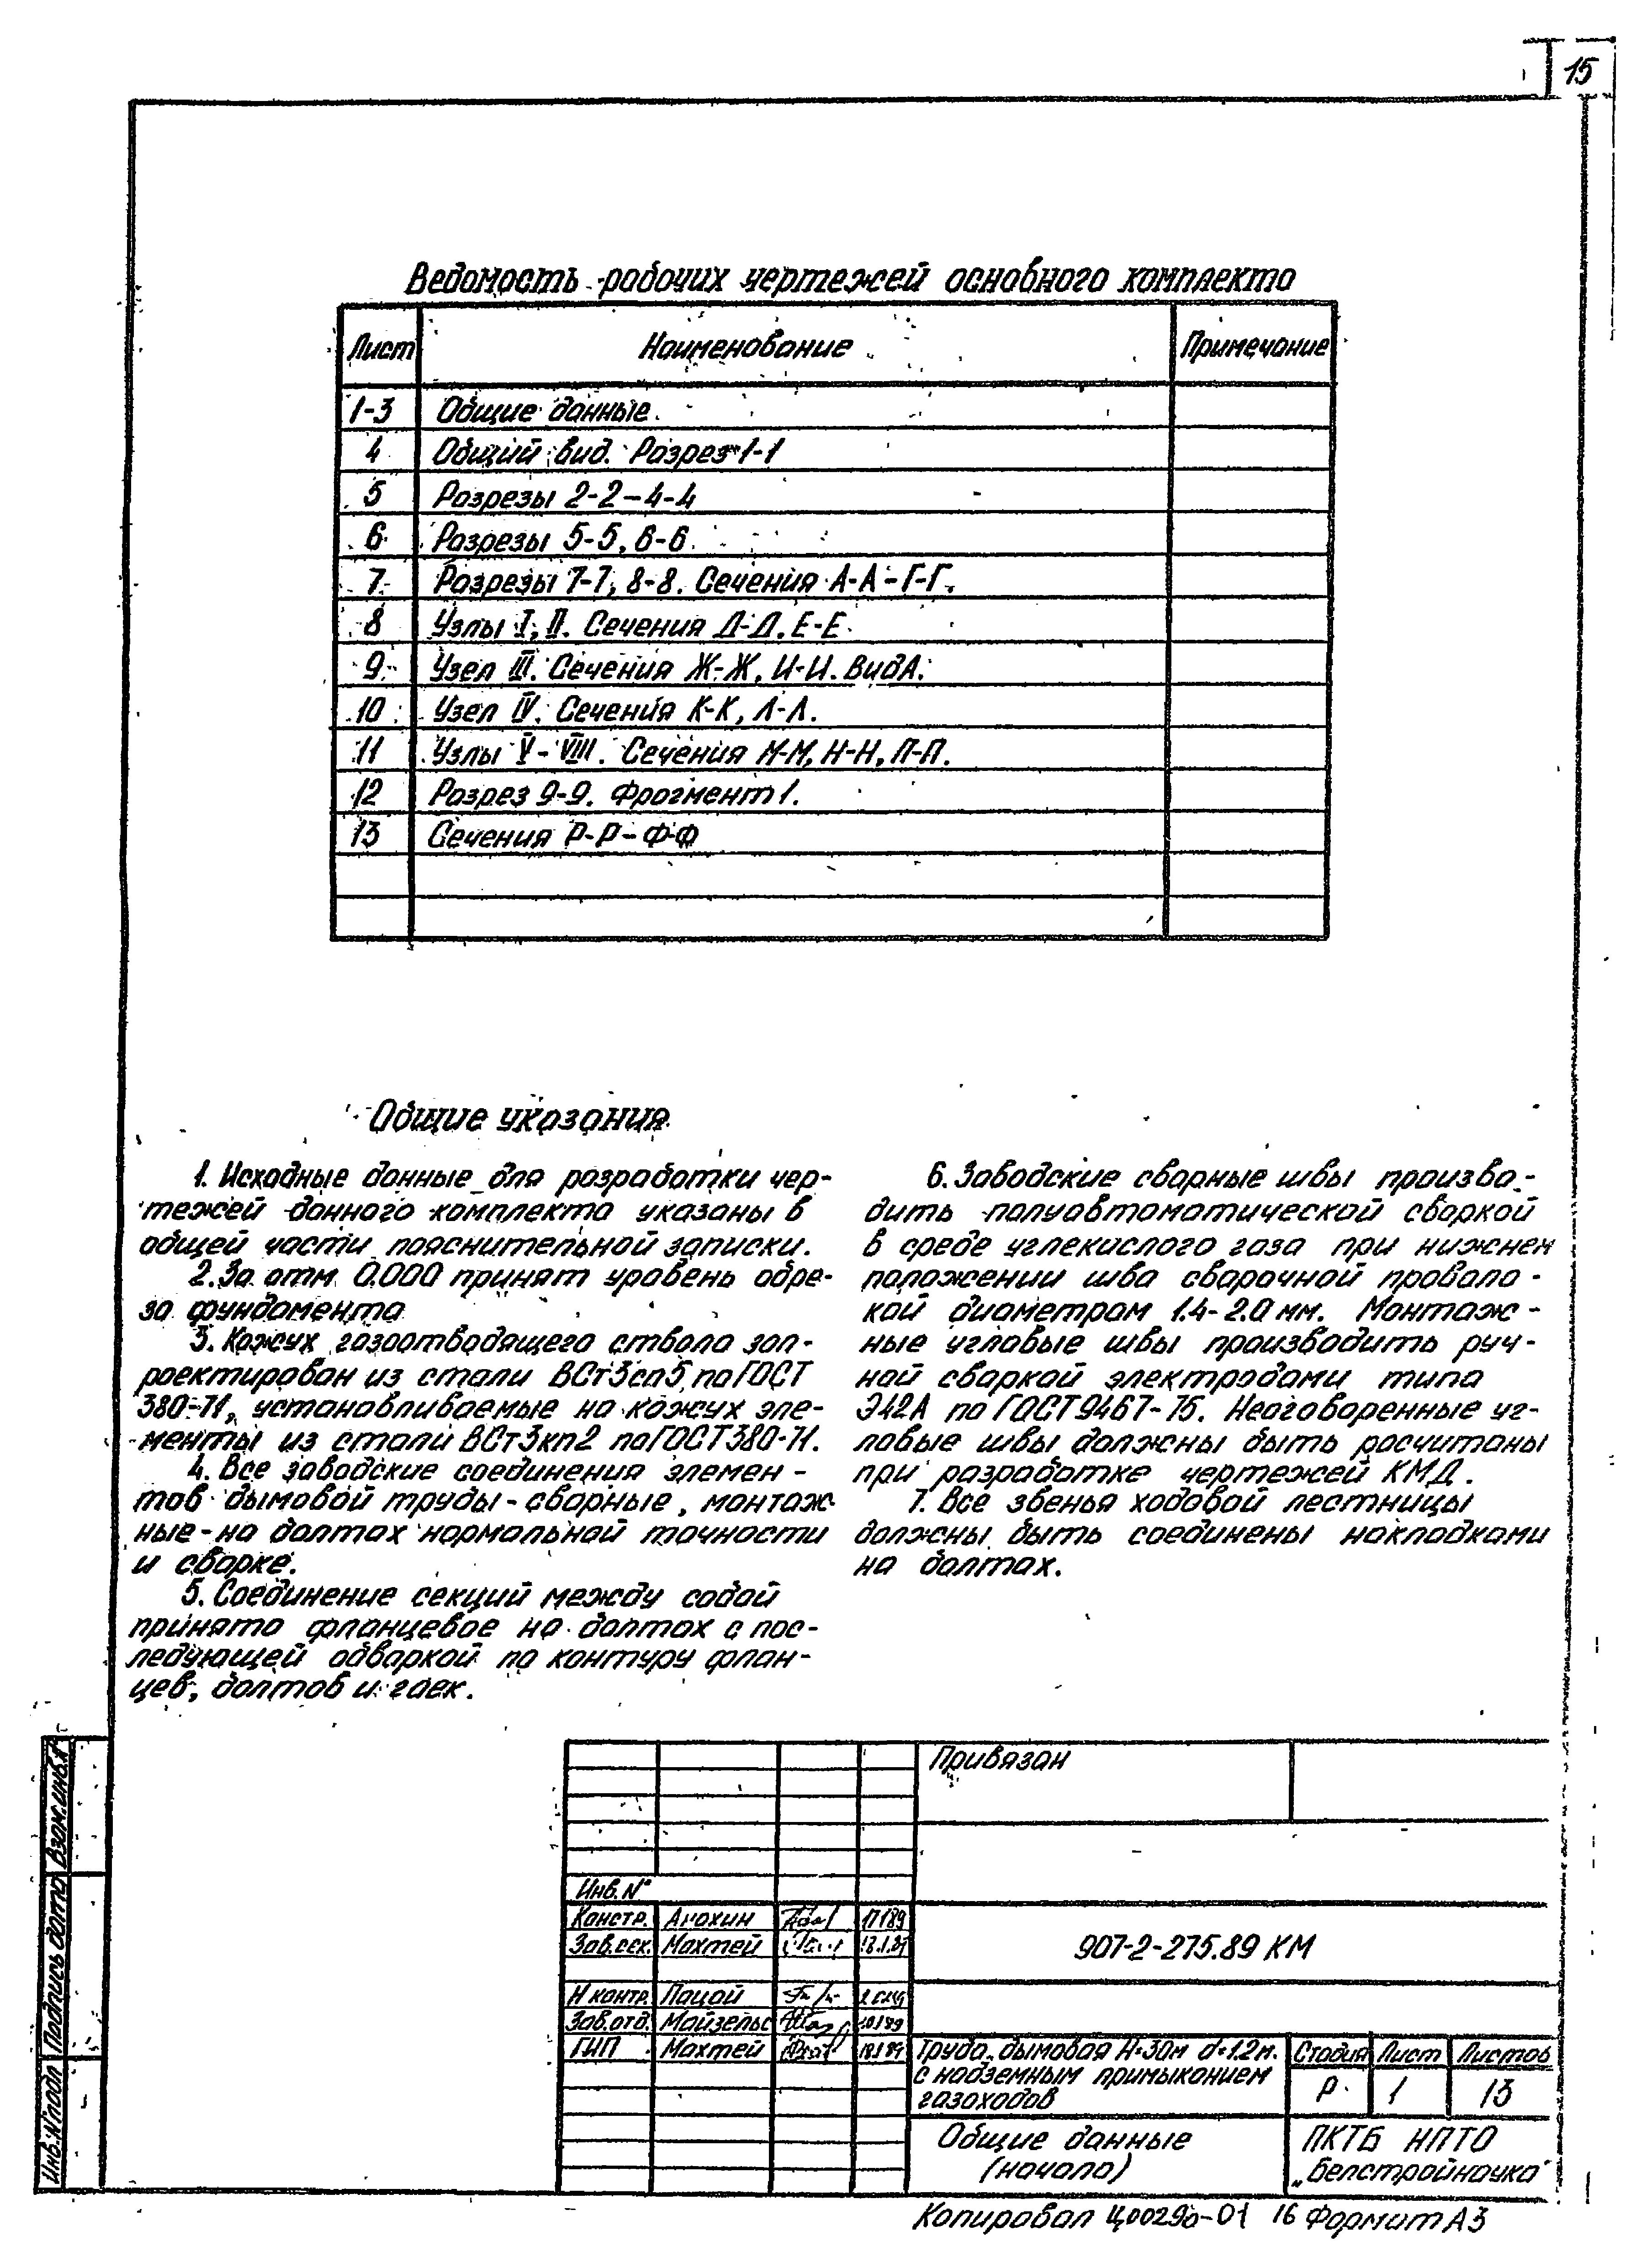 15
Ведомость рабочих чертежей основного комплекта
Лист Наименование Примечание
1-3 Общие данные
4 Общий вид. Разрез 1-1
5 Разрезы 2-2-4-4
6 Разрезы 5-5, 6-6
7 Разрезы 7-7, 8-8. Сечения А-А-Г-Г.
8 Узлы I, II. Сечения Д-Д, Е-Е.
9 Узел III. Сечения Ж-Ж, И-И. Вид А.
10 Узел IV. Сечения К-К, Л-Л.
11 Узлы V-VIII. Сечения М-М, Н-Н, П-П.
12 Разрез 9-9. Фрагмент 1.
13 Сечения Р-Р-Ф-Ф
Общие указания
1. Исходные данные для разработки чер-
тежей данного комплекта указаны в
общей части пояснительной записки.
2. За отм 0.000 принят уровень обре-
за фундамента
3. Кожух газоотводящего ствола зап-
роектирован из стали ВСт3сп5 по ГОСТ
380-71, устанавливаемые на кожух эле-
менты из стали ВСт3кп2 по ГОСТ 380-71.
4. Все заводские соединения элемен-
тов дымовой трубы-сварные, монтаж
ные-на болтах нормальной точности
и сварке.
5. Соединение секций между собой
принято фланцевое на болтах с пос-
ледующей обваркой по контуру флан-
цев, болтов и гаек.
6. Заводские сварные швы произво-
дить полуавтоматической сваркой
в среде углекислого газа при нижнем
положении шва сварочной проволо-
кой диаметром 1.4-2.0 мм. Монтаж-
ные угловые швы производить руч-
ной сваркой электродами типа
Э42А по ГОСТ 9467-75. Неоговоренные уг-
ловые швы должны быть расчитаны
при разработке чертежей КМД.
7. Все звенья ходовой лестницы
должны быть соединены накладками
на болтах.
Привязан
Инв. №
Констр. Анохин
Зав.сек. Махтей
907-2-275.89 КМ
Н контр. Пацой
Зав.отд. Майзельс
ГИП Махтей
Труба дымовая Н=30м d=1.2м.
с надземным примыканием
газоходов
Стадия Лист Листов
Р 1 13
Общие данные
(начало)
ПКТБ НПТО
„Белстройнаука"
Взам.инв.№
Подпись дата
Инв.№подл
Копировал Ц00290-01 16 Формат А3